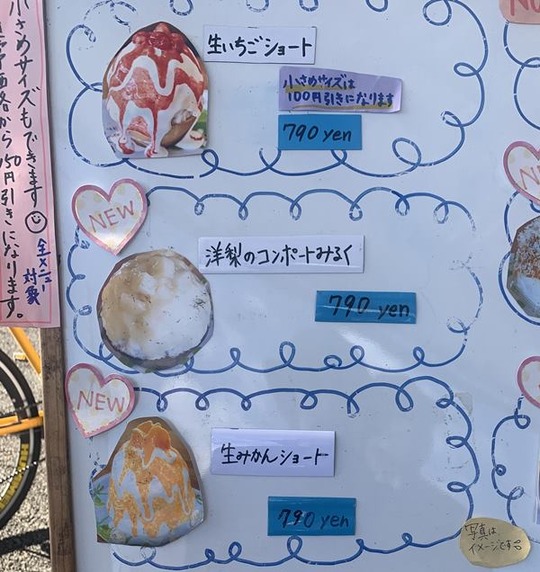 小さめサイズもできます
150円引きになります。
全メニュー
対象
生いちごショート
小さめサイズは
100円引きになります
790 yen
NEW
洋梨のコンポートみるく
790 yen
NEW
生みかんショート
790 yen
写真は
イメージです